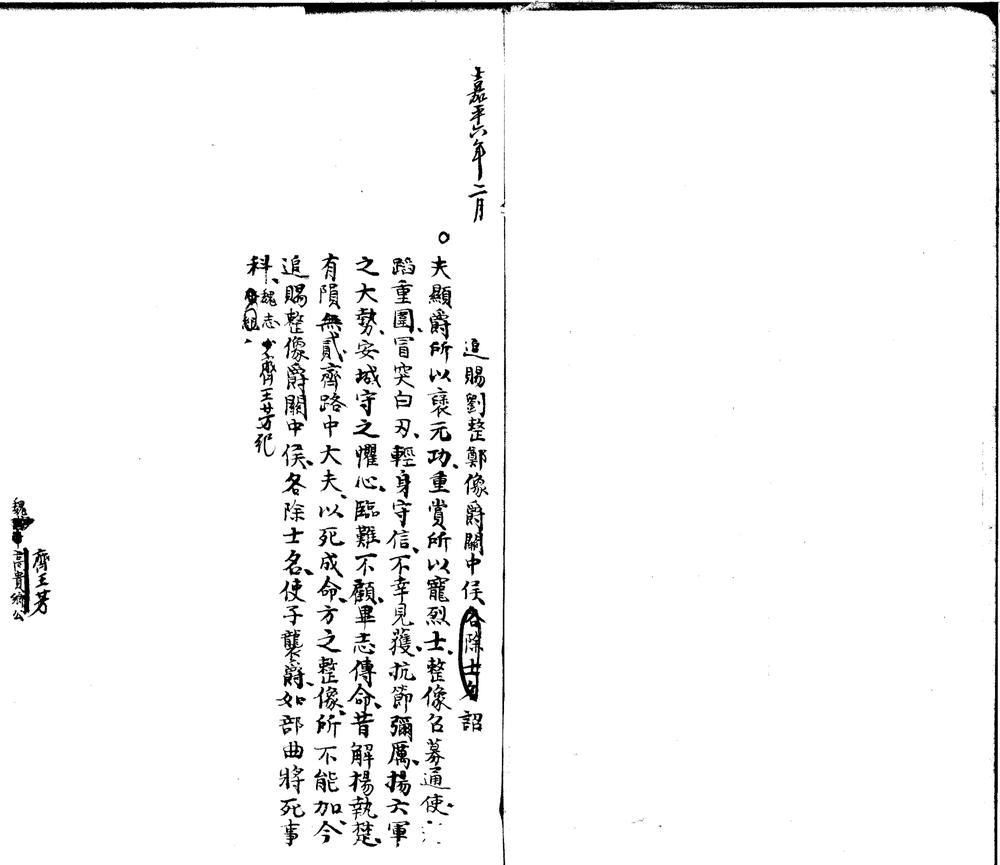 嘉平六年二月
追賜劉整鄭像爵關中侯各除士名詔
。夫顯爵所以襃元功、重賞所以寵烈士、整像召募通使、
蹈重圍、冒突白刃、輕身守信、不幸見獲、抗節彌厲、揚六軍
之大勢、安城守之懼心、臨難不顧、畢志傳命、昔解楊執楚、
有隕無貳、齊路中大夫、以死成命、方之整像、所不能加、今
追賜整像爵關中侯、各除士名、使子襲爵、如部曲將死事
科、魏志 齊王芳紀
齊王芳
魏 高貴鄉公